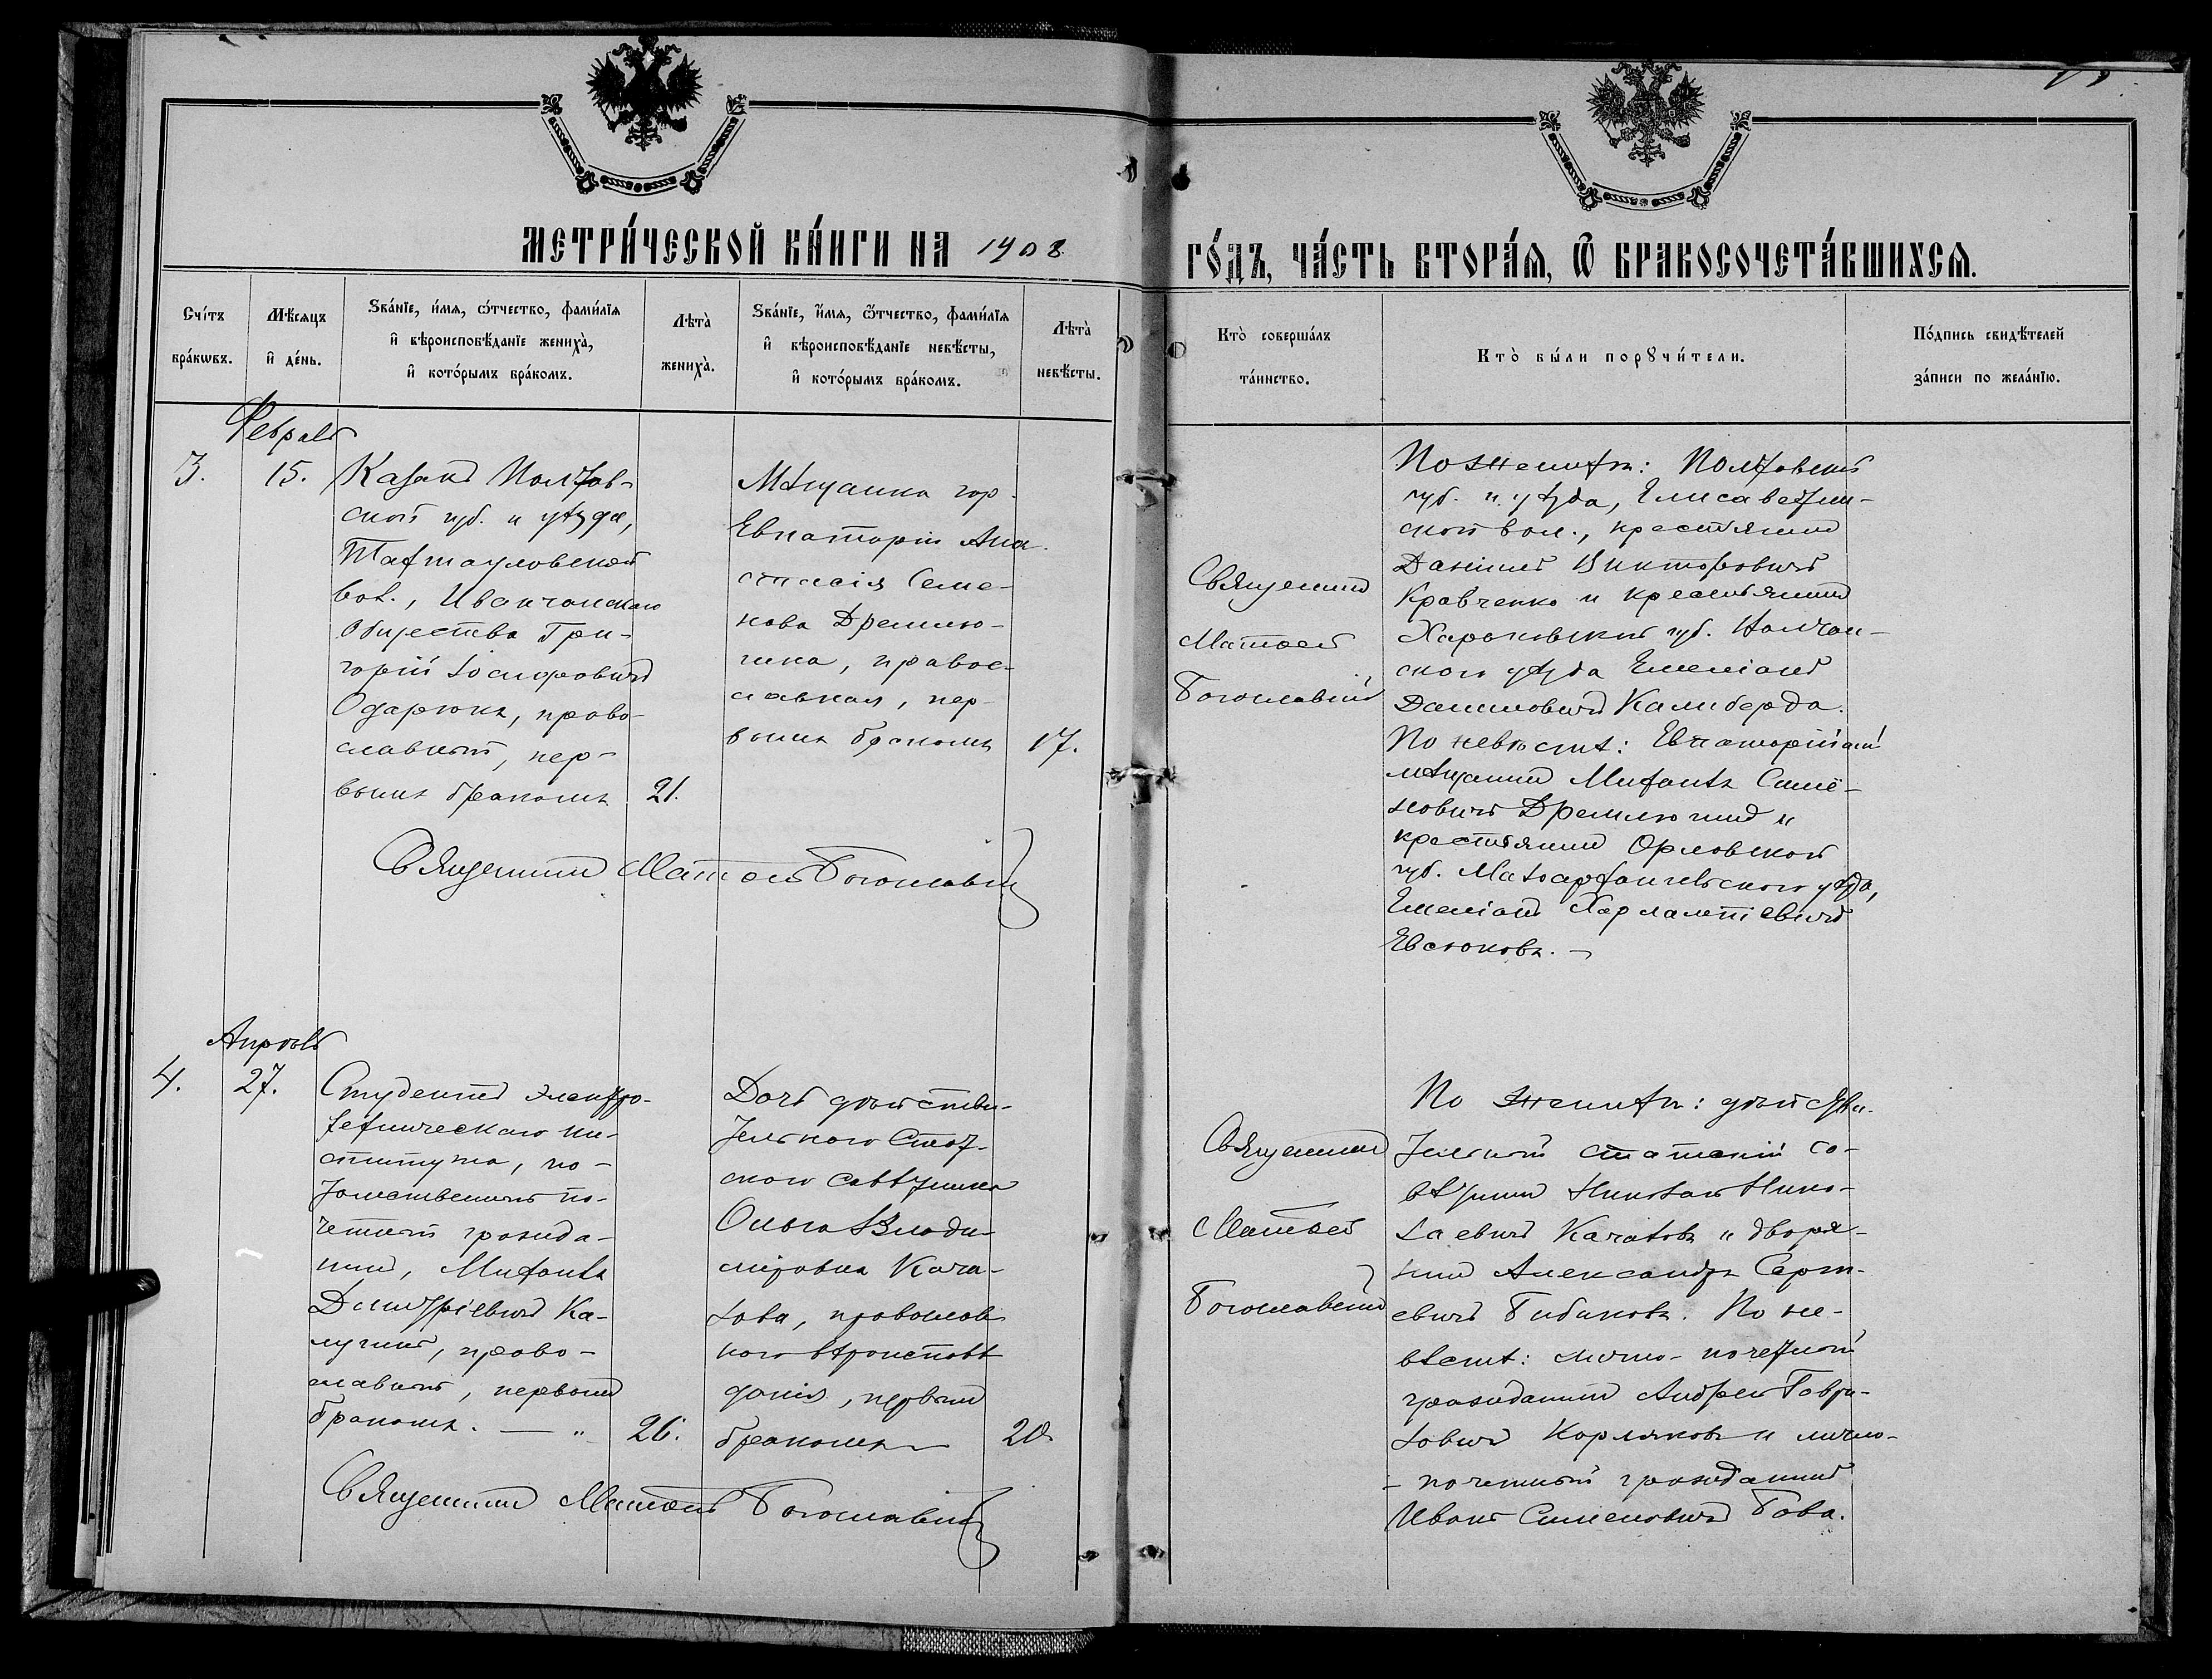 МЕТРИ́ЧЕСКОЙ КНИ́ГИ НА 1908
ГО́ДЪ, ЧА́СТЬ ВТОРА́Ѧ, Ѿ БРАКОСОЧЕТА́ВШИХСѦ.
Счі́тъ
бра́кѡвъ.
Мѣ́сѧцъ
и҆ де́нь.
Ѕва́нїе, и҆́мѧ, ѻ҆́тчество, фами́лїѧ
и҆ вѣроисповѣ́данїе жениха̀,
и҆ кото́рымъ бра́комъ.
Лѣта̀
жениха̀.
Ѕва́нїе, и҆́мѧ, ѻ҆́тчество, фами́лїѧ
и҆ вѣроисповѣ́данїе невѣ́сты,
и҆ кото́рымъ бра́комъ.
Лѣта̀
невѣ́сты.
Кто̀ соверша́лъ
та́инство.
Кто̀ бы́ли порꙋчи́тели.
По́дпись свидѣ́телей
за́писи по жела́нїю.
Февраль
3.
15.
Казакъ Полтав-
ской губ. и уѣзда,
Тахтауловской
вол., Иванчанскаго
Общества Гри-
горій Іосифовичъ
Одарюкъ, право-
славный, пер-
вымъ бракомъ
21.
Мѣщанка гор.
Евпаторіи Ана-
стасія Семе-
нова Дремлю-
гина, правос-
лавная, пер-
вымъ бракомъ
17.
Священникъ Матѳей Богославскій
Священникъ
Матѳей
Богославскій
По женихѣ: Полтавской
губ. и уѣзда, Елисаветин-
ской вол., крестьянинъ
Даніилъ Викторовичъ
Кравченко и крестьянинъ
Харьковской губ. Волчан-
скаго уѣзда Емеліанъ
Даниловичъ Калиберда.
По невѣстѣ: Евпаторійскій
мѣщанинъ Михаилъ Симе-
новичъ Дремлюгинъ и
крестьянинъ Орловской
губ. Малоархангельскаго уѣзда,
Емеліанъ Харлампіевичъ
Евсюковъ. —
Апрѣль
4.
27.
Студентъ электро-
техническаго ин-
ститута, по-
томственный по-
четный гражда-
нинъ, Михаилъ
Димитріевичъ Ка-
лугинъ, право-
славный, первымъ
бракомъ. — "
26.
Дочь дѣйстви-
тельнаго Стат-
скаго совѣтника
Ольга Влади-
мировна Кача-
лова, православ-
наго вѣроисповѣ
данія, первымъ
бракомъ —
20.
Священникъ Матѳей Богославскій
Священникъ
Матѳей
Богославскій
По женихѣ: дѣйстви-
тельный статскій со-
вѣтникъ Николай Нико-
лаевичъ Качаловъ и дворя-
нинъ Александръ Серг-
евичъ Бибиковъ. По не-
вѣстѣ: лично-почетный
гражданинъ Андрей Гаври-
ловичъ Корляковъ и лично-
- почетный гражданинъ
Иванъ Сименовичъ Гава.